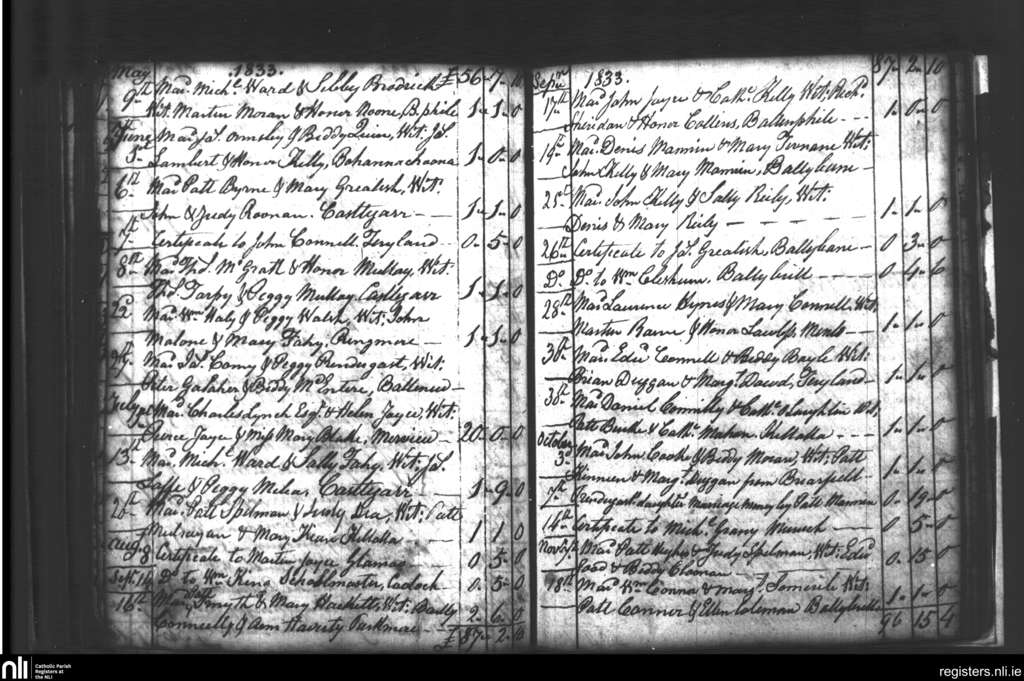 May 1833. £56-7-10
9th Mard. Michl. Ward & Sibby Brodrick
Wit. Martin Moran & Honor Noone, Bphile 1-1-0
June Mard. Js. Ormsby & Biddy Quin, Wit. Js.
5th Lambert & Honor Kelly, Bohannachoona 1-0-0
6th Mard. Patt Byrne & Mary Grealish, Wit.
John & Judy Roonan. Castlegarr 1-1-0
7th Certificate to John Connell Teryland 0-5-0
8th Mard. Thos. McGrath & Honor Mullay, Wit:
Thos. Tarpy & Peggy Mullay Castlegarr 1-1-0
22 Mard. Wm. Haly & Peggy Walsh, Wit: John
Malone & Mary Fahy, Ringmore 1-1-0
Mard. Js. Comy & Peggy Prendergast, Wit:
Peter Galaher & Biddy McEntire,
July Mard. Charles Lynch Esqr. & Helen Joyce, Wit:
Pierce Joyce & Miss Mary Blake, Merview 20-0-0
13th Mard. Michl. Ward & Sally Fahy, Wit: Js.
& Peggy Castlegarr 1-9-0
Mard. Patt Spelman & Dea, Wit: Patt
& Mary Kean Killolla 1 1 0
Augt. 8 Certificate to Martin Joyce, 0-5-0
Sept. 14 Do. to Wm. King, Schoolmaster, 0-5-0
16th Mard. Smyth & Mary Hacketts, Wit: Bady 2-6-0
Connelly & Ann Haverty Parkmore £87-2-10
Septr. 1833. 87-2-10
17th Mard. John Joyce & Cathe. Kelly Wit: Richd.
Sheridan & Honor Collins, Ballinphile 1-0-0
19th Mard. Denis Mannin & Mary Tirnane Wit:
John Kelly & Mary Mannin, Ballybane
25th Mard. John Kelly & Sally Reily, Wit:
Denis & Mary Reily 1-1-0
26th Certificate to Js. Grealish, Ballybane 0 3-0
Do. Do. to Wm. Ballybrill 0 4-6
28th Mard. Laurence Byrnes & Mary Connell Wit:
Martin & Honor Menlo 1-1-0
30th Mard. Edwd. Connell & Biddy Boyle Wit:
Brian Duggan & Margt. Dawd, Teryland 1-1-0
30th Mard. Daniel Connilly & Cathe. Olaughlin Wit,
Patt Burke & Cathe. Mahon. Killolla 1-1-0
October
3d Mard. John Cooke & Biddy Moran, Wit: Patt
Kinnien & Margt. Duggan from Briarfield 1-1-0
7th Prendergast daughter Marriage money by Patt Mannin 0-19-0
14th Certificate to Michl. 0 5-0
Novr. Mard. Patt Hughes & Judy Spelman, Wit: Edwd.
& Biddy 0-15 0
18th Mard. Wm. Connor & Margt. Wit:
Patt Connor & Ellen Coleman Ballybrill 1-1-0
96 15 4
nli
Catholic Parish
Registers at
the NLI
registers.nli.ie